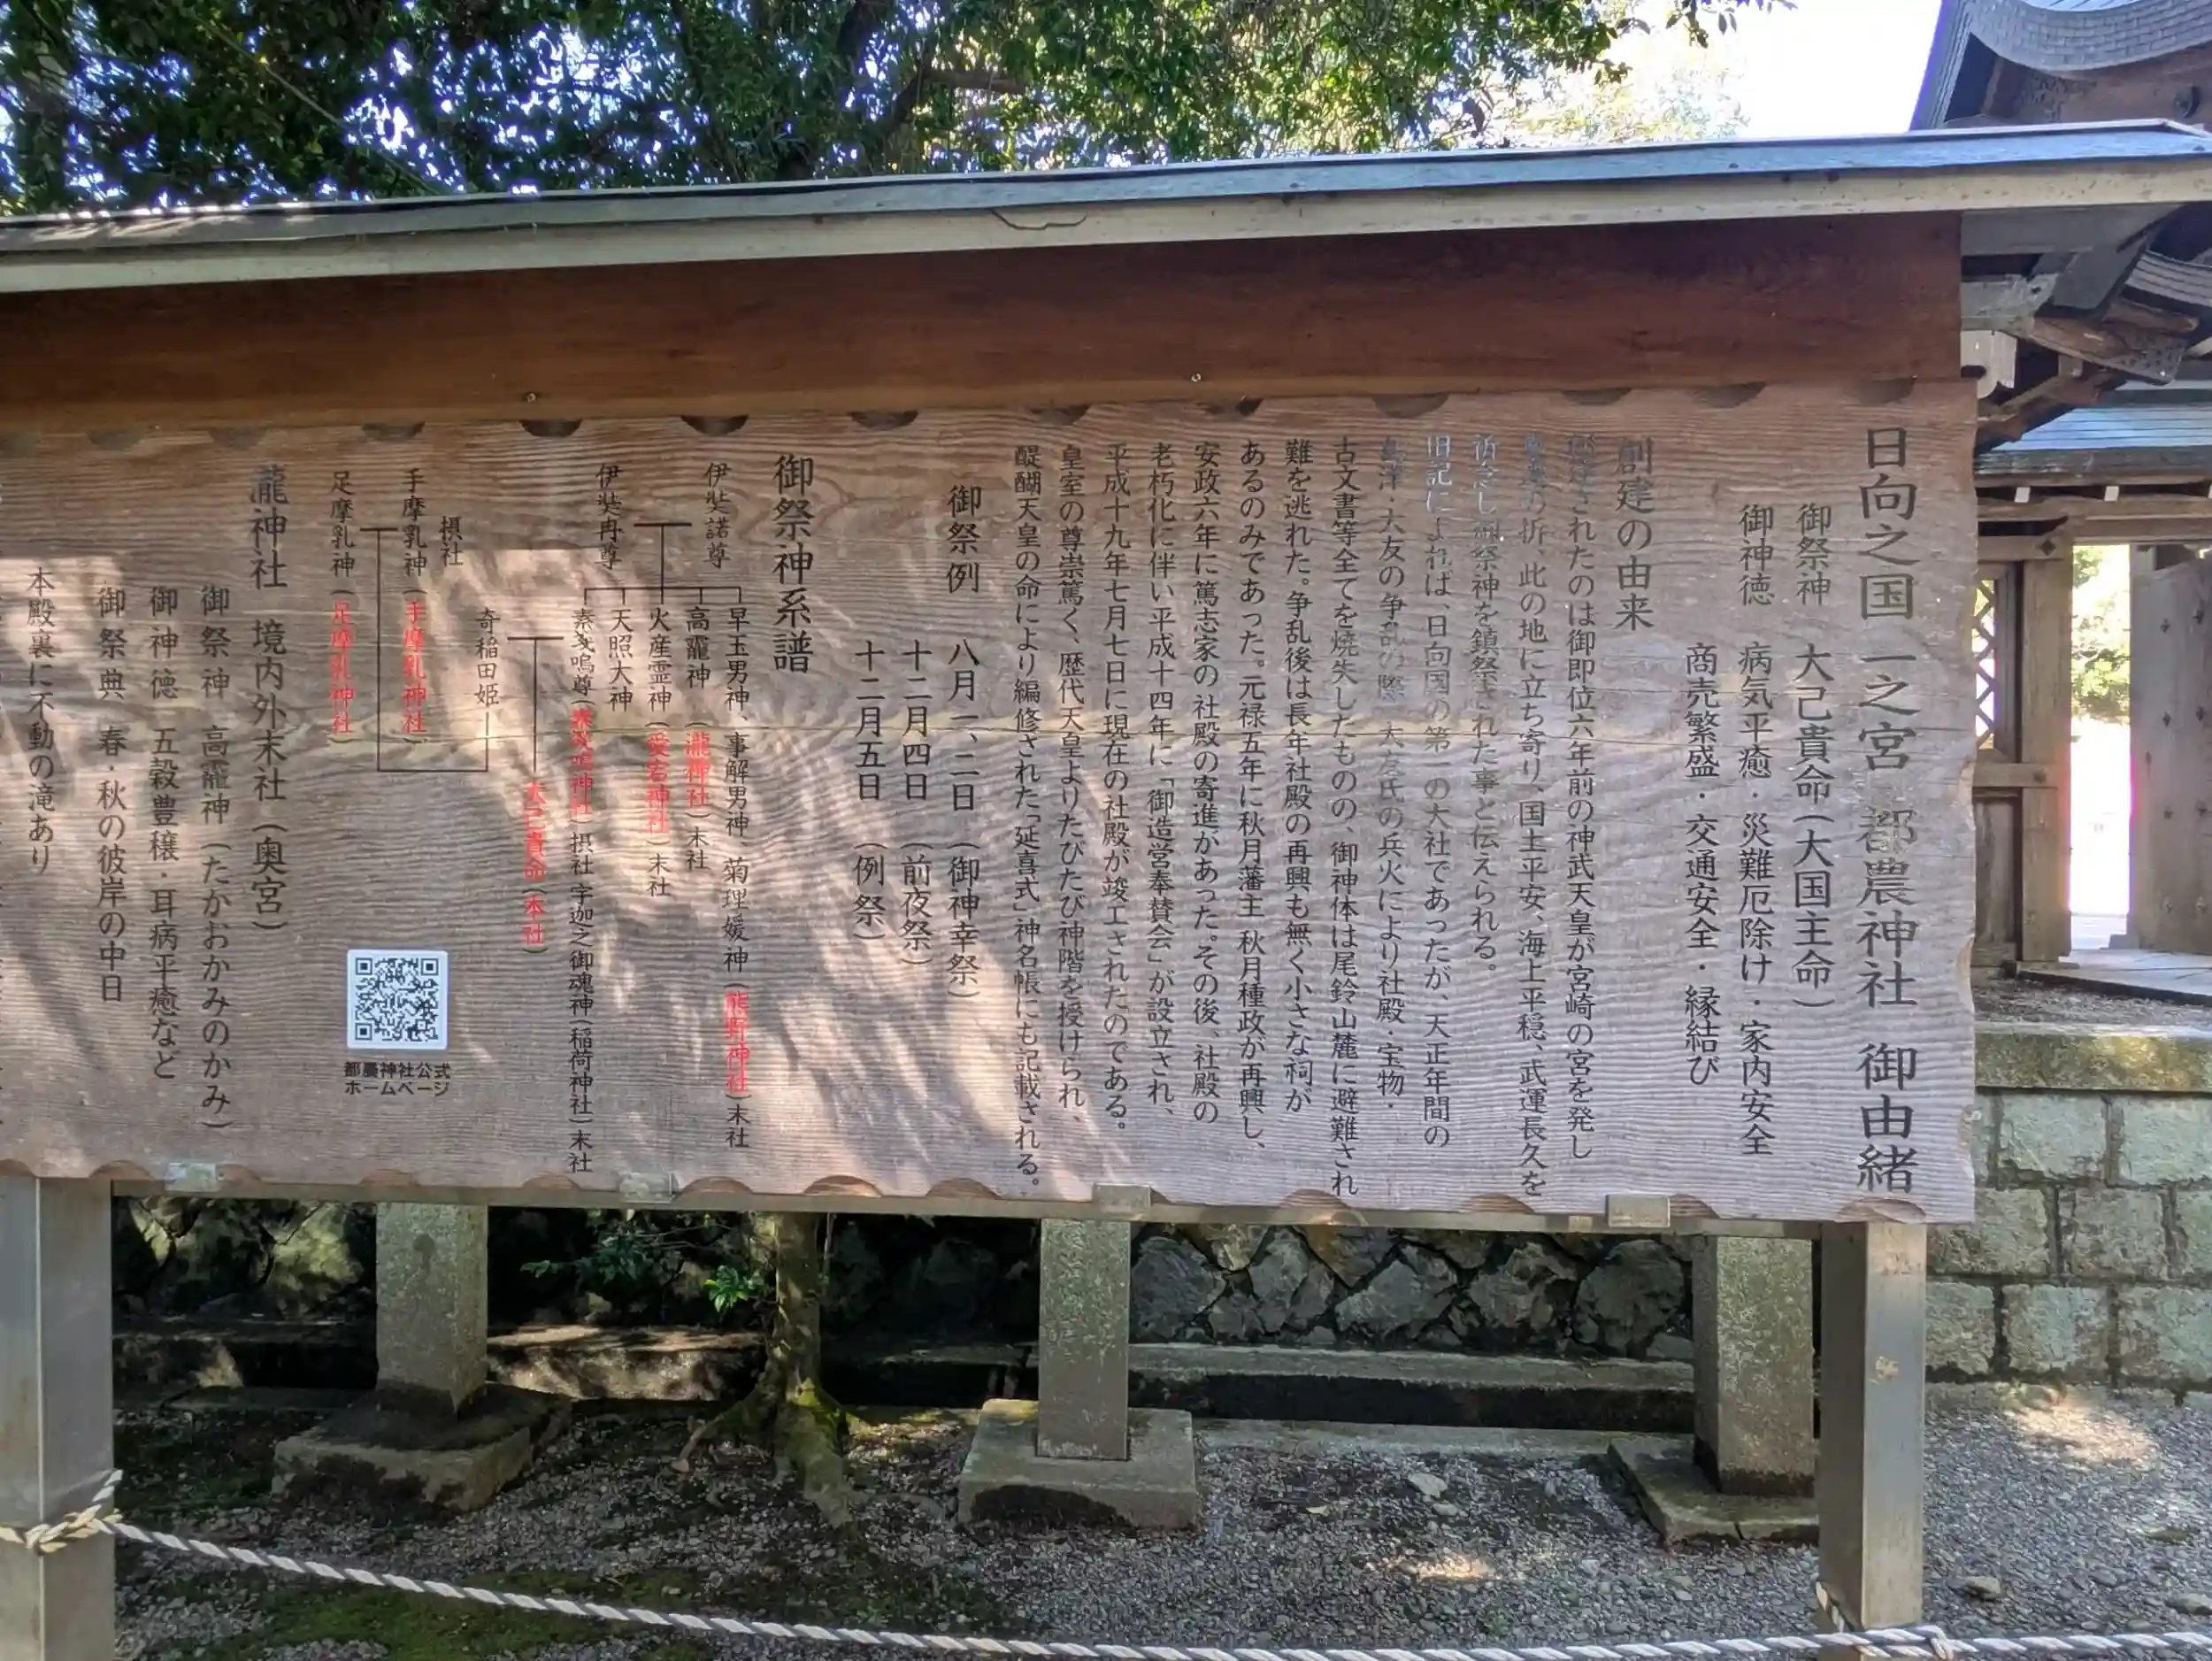 日向之国 一之宮 都農神社 御由緒
御祭神 大己貴命(大国主命)
御神徳 病気平癒・災難厄除け・家内安全
商売繁盛・交通安全・縁結び
創建の由来
されたのは御即位六年前の神武天皇が宮崎の宮を発し
の折、此の地に立ち寄り、国土平安、海上平穏、武運長久を
祈念し御祭神を鎮祭された事と伝えられる。
旧記によれば、日向国の第一の大社であったが、天正年間の
島津・大友の争乱の際、大友氏の兵火により社殿・宝物・
古文書等全てを焼失したものの、御神体は尾鈴山麓に避難され
難を逃れた。争乱後は長年社殿の再興も無く小さな祠が
あるのみであった。元禄五年に秋月藩主 秋月種政が再興し、
安政六年に篤志家の社殿の寄進があった。その後、社殿の
老朽化に伴い平成十四年に「御造営奉賛会」が設立され、
平成十九年七月七日に現在の社殿が竣工されたのである。
皇室の尊崇篤く、歴代天皇よりたびたび神階を授けられ、
醍醐天皇の命により編修された「延喜式」神名帳にも記載される。
御祭例 八月一、二日 (御神幸祭)
十二月四日 (前夜祭)
十二月五日 (例祭)
御祭神系譜
伊奘諾尊
伊奘冉尊
早玉男神、事解男神、菊理媛神(熊野神社)末社
高龗神 (瀧神社)末社
火産霊神(愛宕神社)末社
天照大神
素戔嗚尊(素戔嗚神社)摂社 宇迦之御魂神(稲荷神社)末社
大己貴命(本社)
奇稲田姫
摂社
手摩乳神(手摩乳神社)
足摩乳神(足摩乳神社)
都農神社公式
ホームページ
瀧神社 境内外末社(奥宮)
御祭神 高龗神(たかおかみのかみ)
御神徳 五穀豊穣・耳病平癒など
御祭典 春・秋の彼岸の中日
本殿裏に不動の滝あり